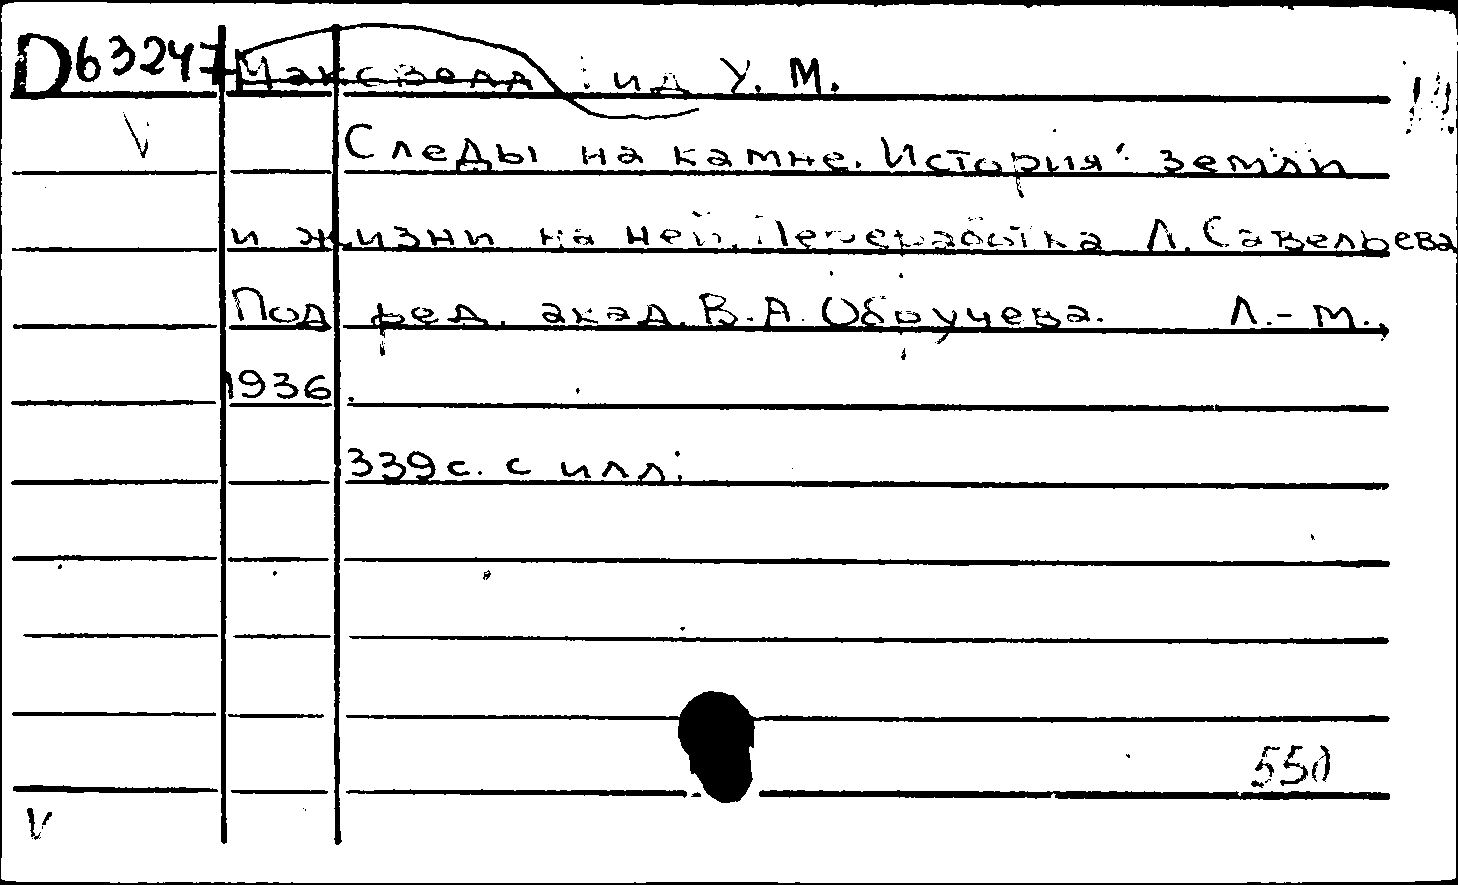 D63247 Максвелл Рид У. М.
Следы на камне. История земли
и жизни на ней. Переработка Л. Савельева
Под ред. акад. В.А. Обручева. Л.-М.,
1936.
339 с. с илл.
550